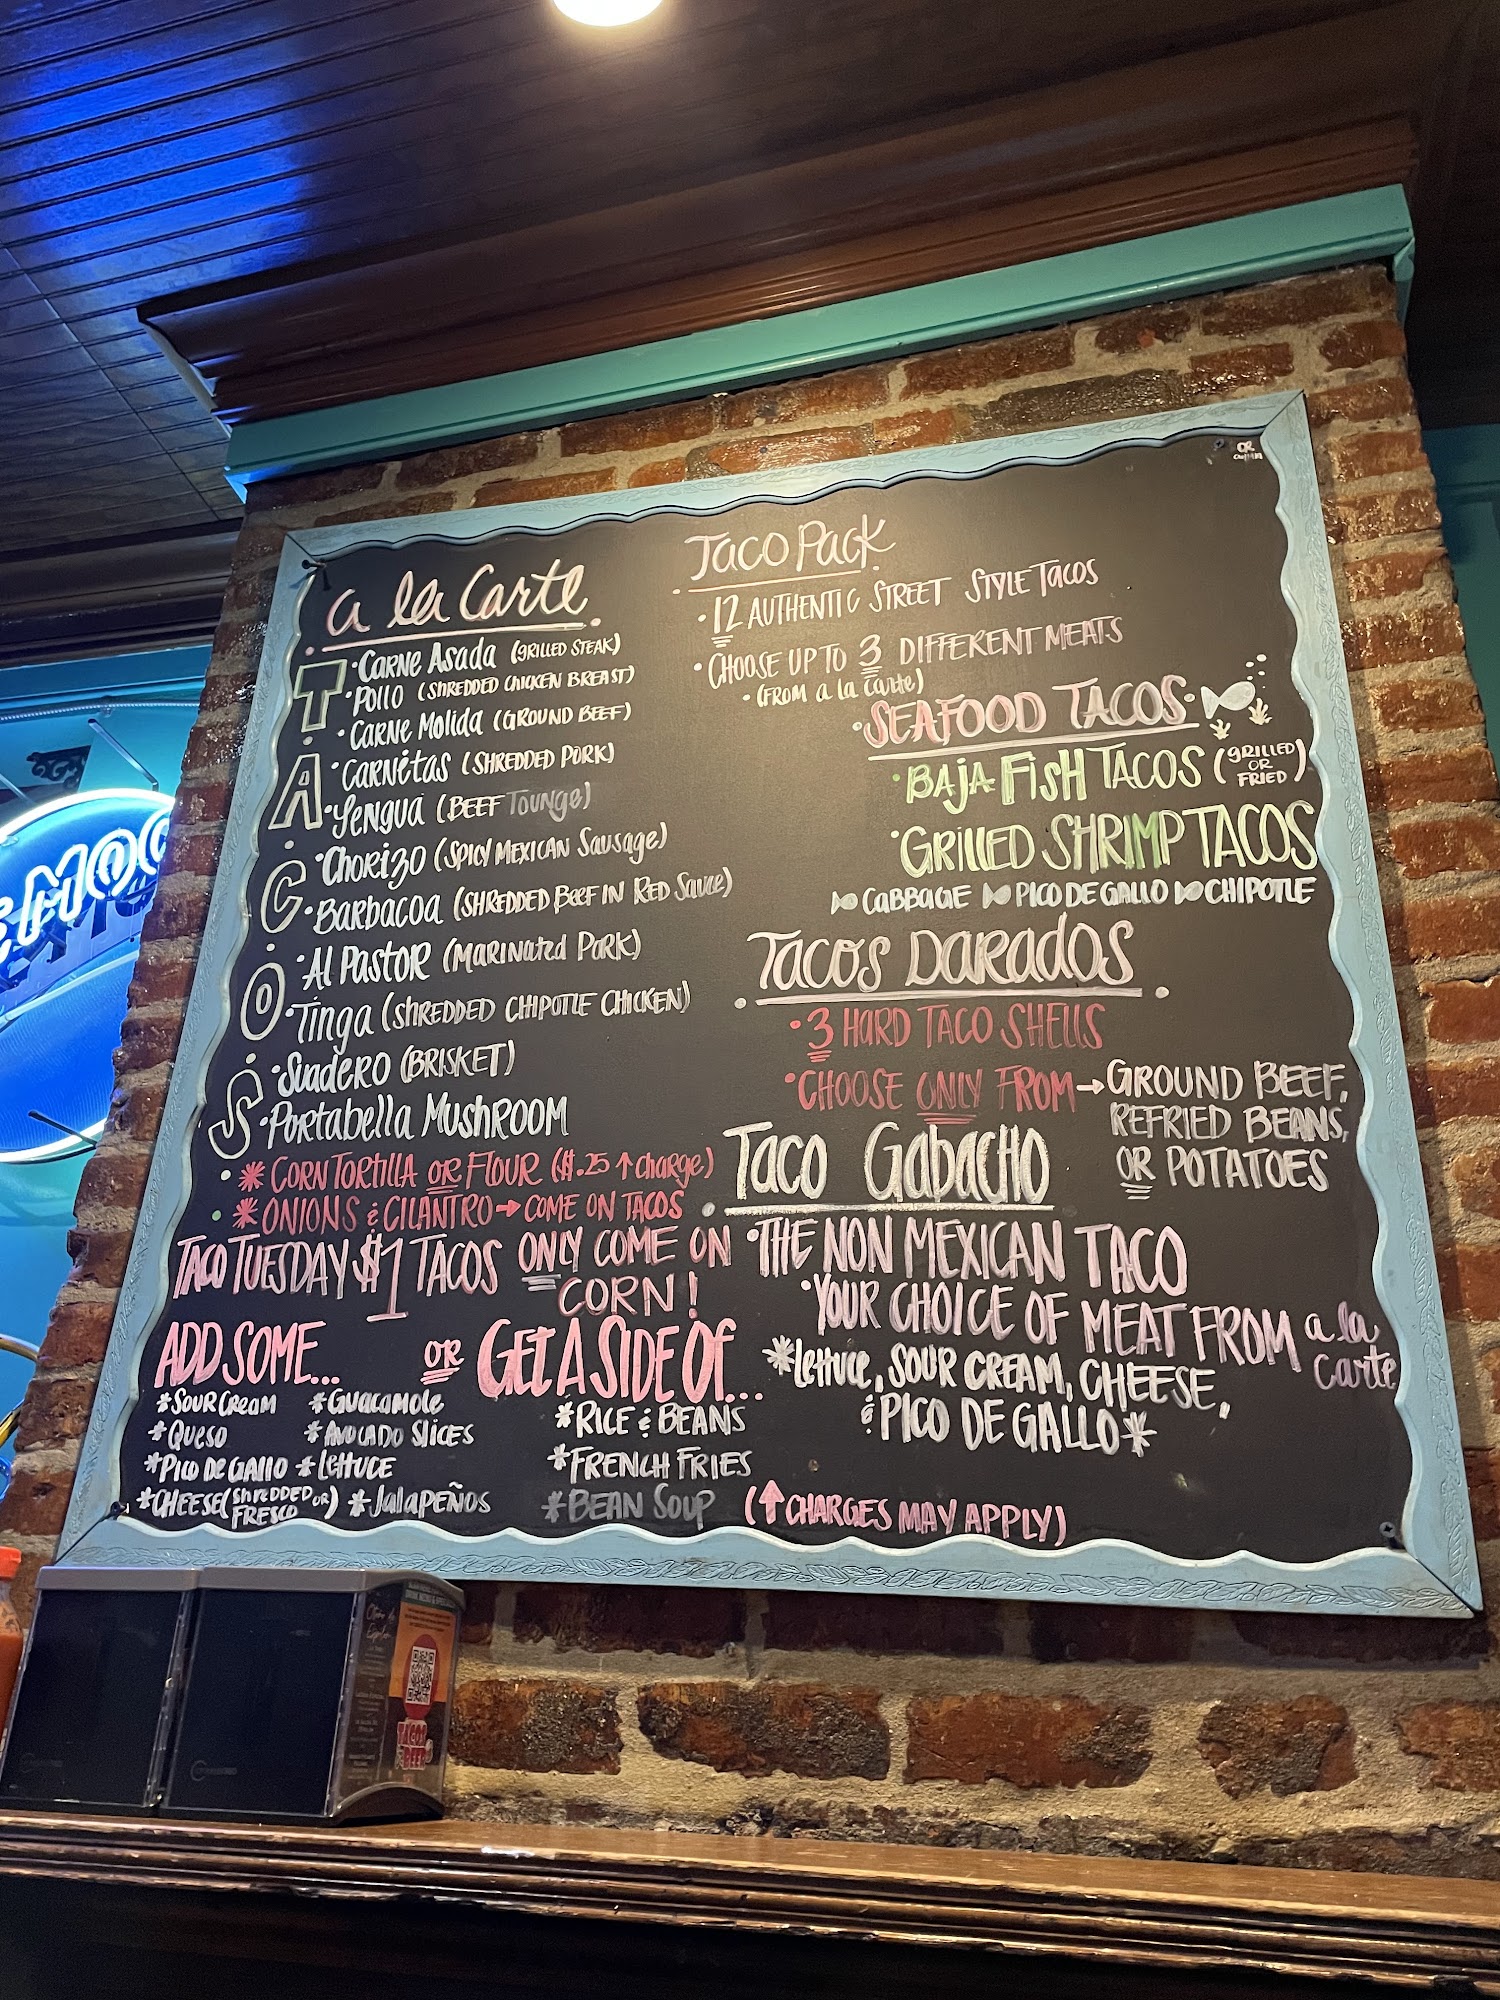 a la Carte
TACOS
Carne Asada (GRILLED STEAK)
Pollo (SHREDDED CHICKEN BREAST)
Carne Molida (GROUND BEEF)
Carnitas (SHREDDED PORK)
Lengua (BEEF Tounge)
Chorizo (SPICY MEXICAN Sausage)
Barbacoa (SHREDDED BEEF IN RED Sauce)
Al Pastor (Marinated Pork)
Tinga (SHREDDED CHIPOTLE CHICKEN)
Suadero (BRISKET)
Portabella Mushroom
* CORN TORTILLA OR FLOUR ($.25 ↑ charge)
* ONIONS & CILANTRO → COME ON TACOS
TACO TUESDAY $1 TACOS ONLY COME ON
CORN!
ADD SOME...
*SOUR CREAM *Guacamole
*Queso *Avocado Slices
*Pico De Gallo *Lettuce
*CHEESE (SHREDDED OR FRESCO) *Jalapeños
OR GET A SIDE OF...
*RICE & BEANS
*FRENCH FRIES
*BEAN SOUP (↑ CHARGES MAY APPLY)
Taco Pack
12 AUTHENTIC STREET STYLE TACOS
CHOOSE UP TO 3 DIFFERENT MEATS
(FROM a la carte)
SEAFOOD TACOS
BAJA FISH TACOS (GRILLED OR FRIED)
GRILLED SHRIMP TACOS
CABBAGE PICO DE GALLO CHIPOTLE
TACOS DARADOS
3 HARD TACO SHELLS
CHOOSE ONLY FROM → GROUND BEEF,
REFRIED BEANS,
OR POTATOES
Taco Gabacho
THE NON MEXICAN TACO
YOUR CHOICE OF MEAT FROM a la carte
*lettuce, SOUR CREAM, CHEESE,
& PICO DE GALLO*
TACOS
& BEER